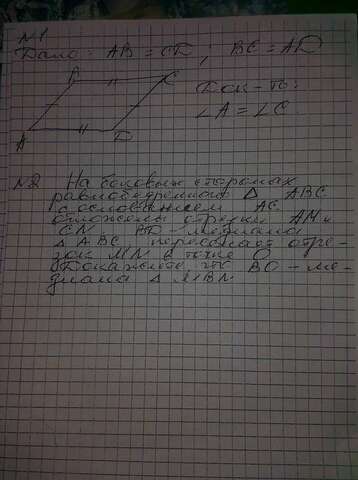 №1
Дано: AB = CD; BC = AD
B C
Док-ть:
∠A = ∠C
A D
№2 На боковых сторонах
равнобедренного Δ ABC
с основанием AC
отложены отрезки AM и
CN. BD - медиана
Δ ABC, пересекает отре-
зок MN в точке O
Докажите, что BO - ме-
диана Δ MBN